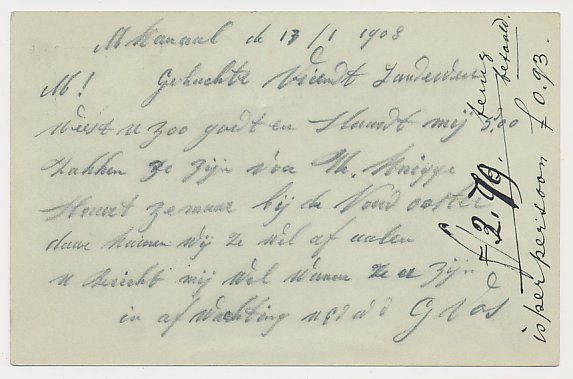 M Kanaal de 13/1 1908
M! Geachte Vriendt Landweer
Weest u zoo goedt en Stuurdt mij 500
Zakken ze zijn voor Th. Knigge
Stuurt ze maar bij de Noord ooster
daar kunnen wij ze wel af aalen
u bericht mij wel waner ze er zijn
in af wachting G Vos
f 2.79. terug betaald.
is per persoon f 0.93.